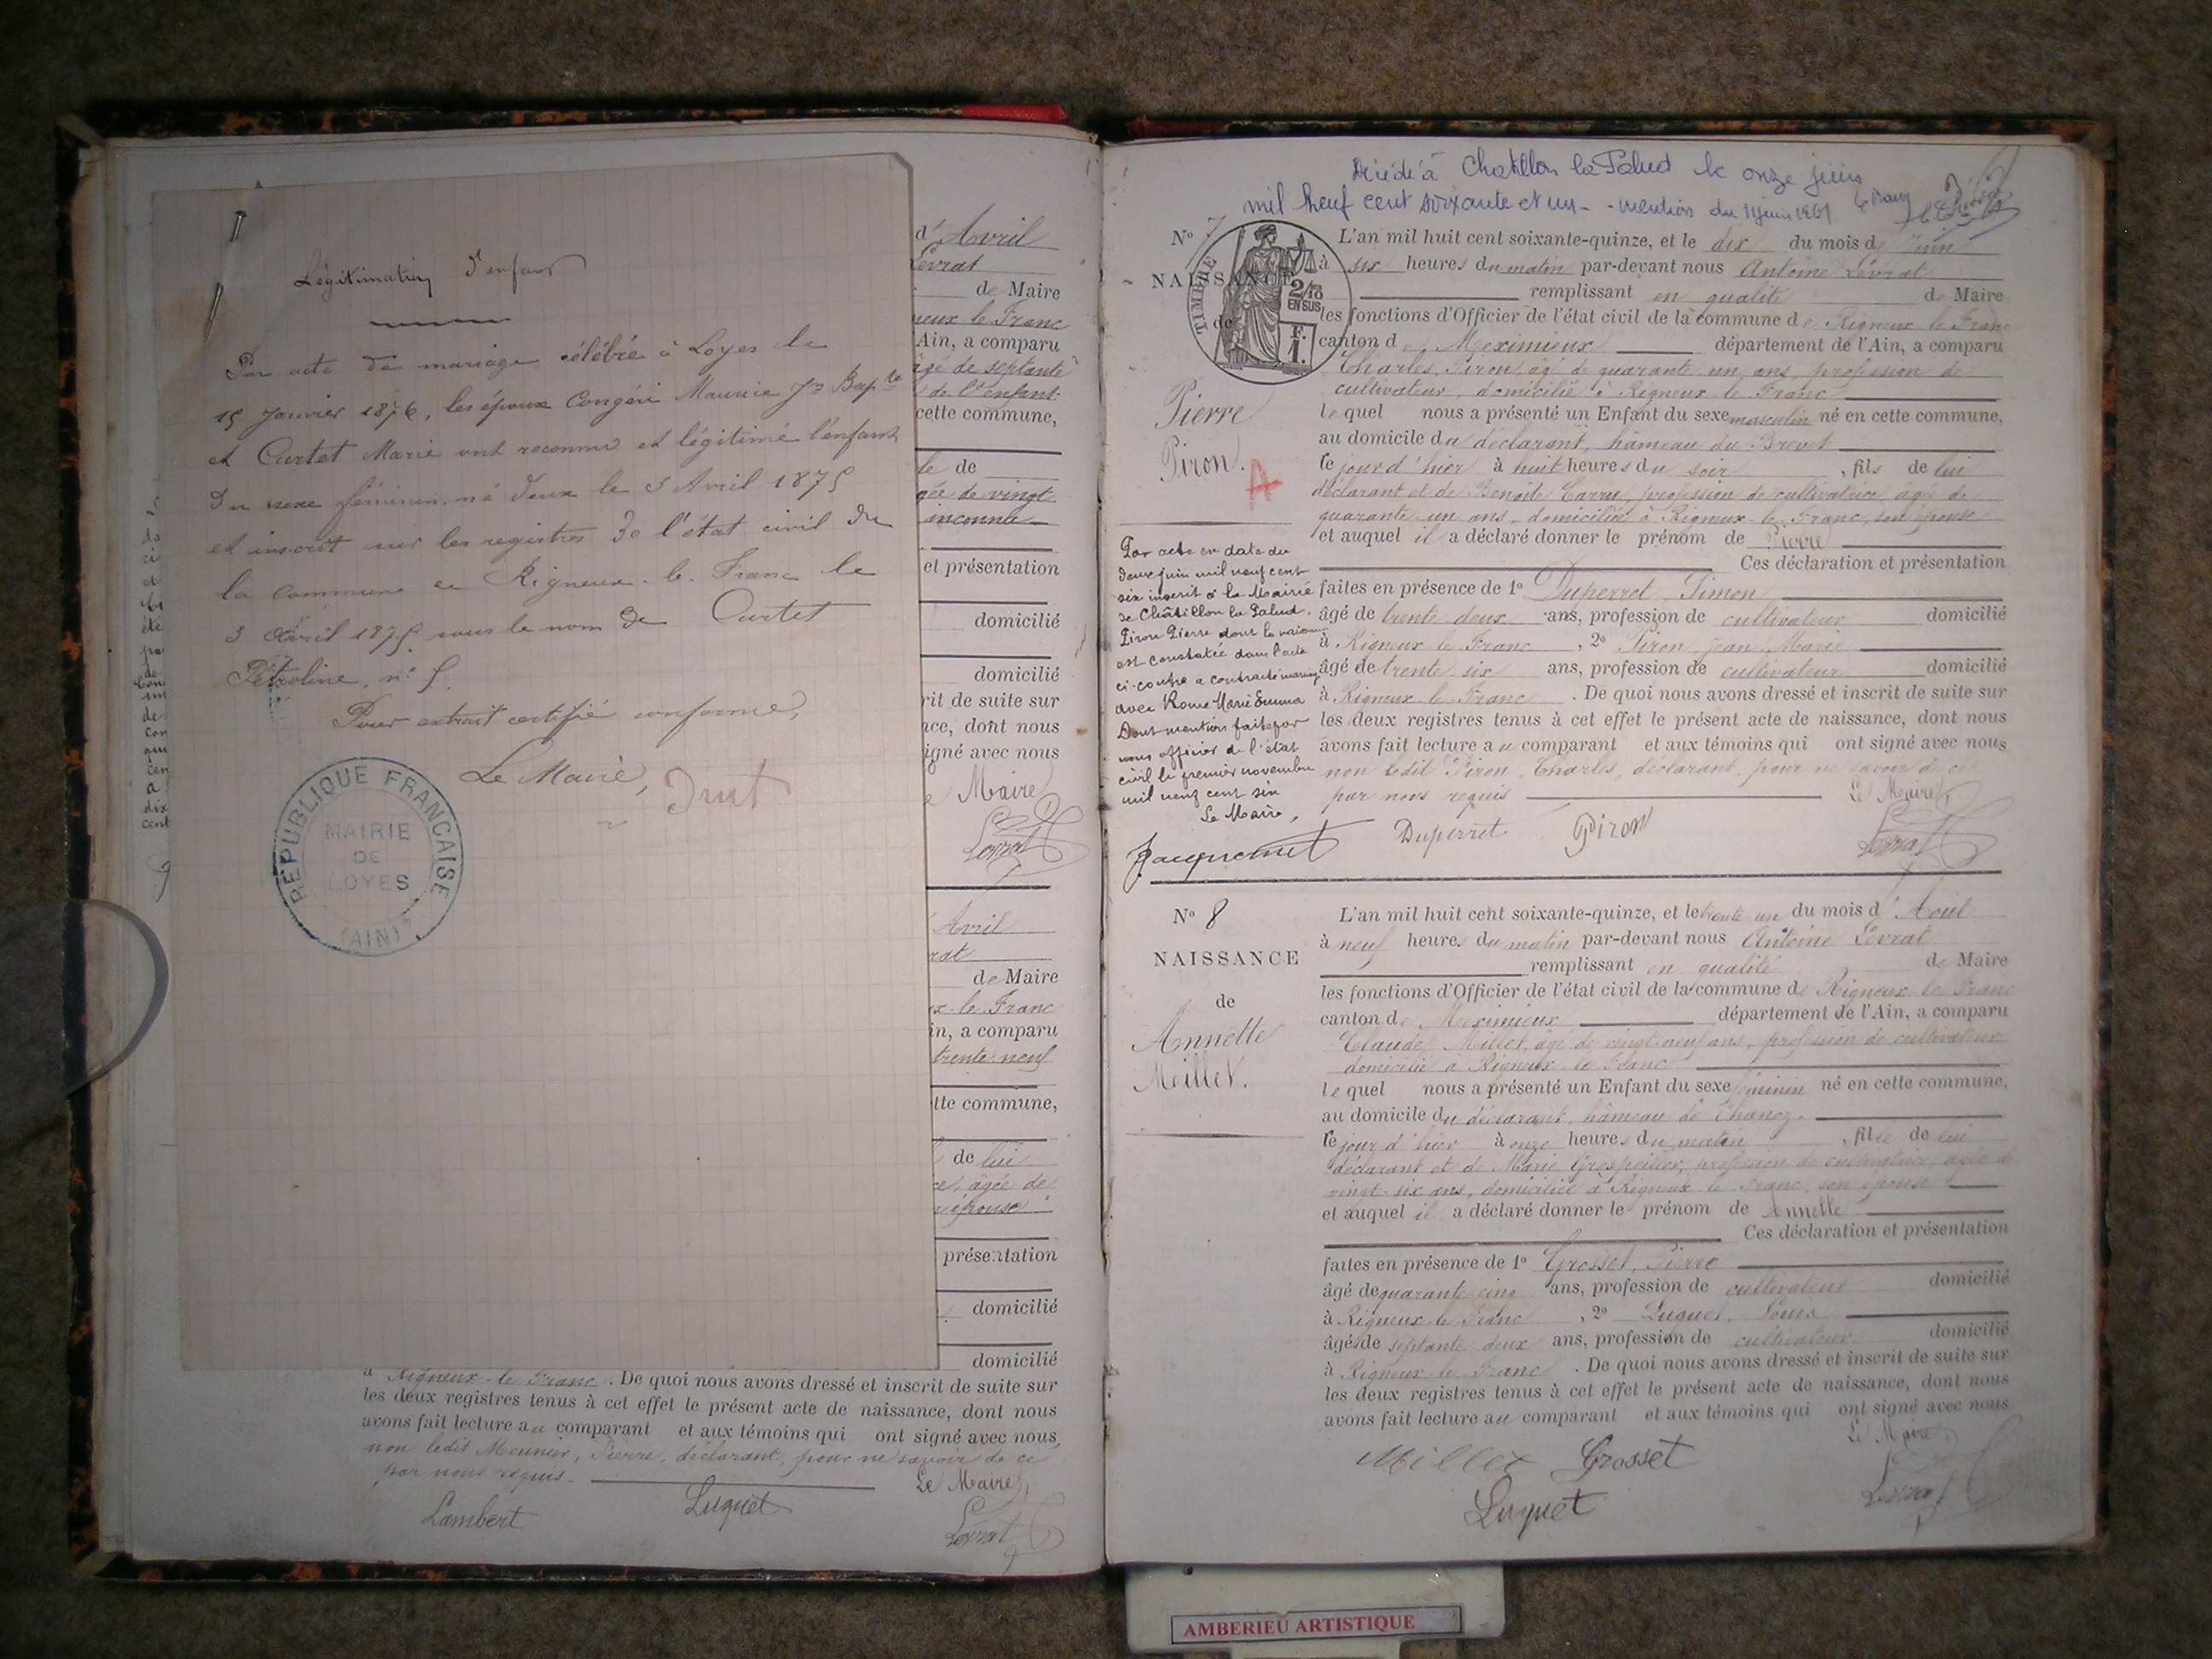 Légitimation d'enfant
Par acte de mariage célébré à Loyes le
15 Janvier 1876, les époux Congéri Maurice Jn Bapte
et Curtet Marie ont reconnu et légitimé l'enfant
du sexe féminin né d'eux le 3 Avril 1875
et inscrit sur les registres de l'état civil de
la commune de Rigneux-le-Franc le
3 Avril 1875 sous le nom de Curtet
Pétroline, n° 5.
Pour extrait certifié conforme,
Le Maire,
RÉPUBLIQUE FRANÇAISE
MAIRIE
DE
LOYES
(AIN)
d'Avril
Levrat
de Maire
neux le Franc
Ain, a comparu
âgé de septante
de l'enfant
cette commune,
de
gée de vingt
inconnu
et présentation
domicilié
domicilié
rit de suite sur
nce, dont nous
igné avec nous
Maire
Levrat
Avril
rat
de Maire
x-le-Franc
in, a comparu
trente-neuf
tte commune,
de lui
ce, âgée de
épouse
présentation
domicilié
domicilié
à Rigneux-le-Franc. De quoi nous avons dressé et inscrit de suite sur
les deux registres tenus à cet effet le présent acte de naissance, dont nous
avons fait lecture au comparant et aux témoins qui ont signé avec nous,
non ledit Meunier, Pierre, déclarant, pour ne savoir de ce
par nous requis.
Le Maire,
Lambert Luquet Levrat
Décédé à Chatillon la Palud le onze juin
mil neuf cent soixante et un - mention du 11 juin 1961
N° 7
NAISSANCE
de
Pierre
Piron.
A
TIMBRE
2/10
EN SUS
F.
1.
L'an mil huit cent soixante-quinze, et le dix du mois de Juin
à six heures du matin par-devant nous Antoine Levrat
remplissant en qualité de Maire
les fonctions d'Officier de l'état civil de la commune de Rigneux le Franc
canton de Meximieux département de l'Ain, a comparu
Charles Piron, âgé de quarante un ans, profession de
cultivateur, domicilié à Rigneux le Franc
lequel nous a présenté un Enfant du sexe masculin né en cette commune,
au domicile du déclarant, hameau du Brevet
le jour d'hier à huit heures du soir, fils de lui
déclarant et de Benoîte Carru, profession de cultivatrice, âgée de
quarante un ans, domiciliée à Rigneux-le-Franc, son épouse
et auquel il a déclaré donner le prénom de Pierre
Ces déclaration et présentation
faites en présence de 1° Duperret Simon
âgé de trente deux ans, profession de cultivateur domicilié
à Rigneux le Franc, 2° Piron Jean Marie
âgé de trente six ans, profession de cultivateur domicilié
à Rigneux le Franc. De quoi nous avons dressé et inscrit de suite sur
les deux registres tenus à cet effet le présent acte de naissance, dont nous
avons fait lecture au comparant et aux témoins qui ont signé avec nous
non ledit Piron, Charles, déclarant, pour ne savoir de ce
par nous requis
Le Maire,
Duperret Piron Levrat
Par acte en date du
deux juin mil neuf cent
six inscrit à la Mairie
de Châtillon la Palud,
Piron Pierre dont la naissance
est constatée dans l'acte
ci-contre a contracté mariage
avec Roux Marie Emma
Dont mention faite par
nous officier de l'état
civil le premier novembre
mil neuf cent six
Le Maire,
Jacquemet
N° 8
NAISSANCE
de
Annette
Millet.
L'an mil huit cent soixante-quinze, et le trente un du mois d'Août
à neuf heures du matin par-devant nous Antoine Levrat
remplissant en qualité de Maire
les fonctions d'Officier de l'état civil de la commune de Rigneux le Franc
canton de Meximieux département de l'Ain, a comparu
Claude Millet, âgé de vingt-neuf ans, profession de cultivateur
domicilié à Rigneux le Franc
lequel nous a présenté un Enfant du sexe féminin né en cette commune,
au domicile du déclarant, hameau de Chanoz.
le jour d'hier à onze heures du matin, fille de lui
déclarant et de Marie Grospellier, profession de cultivatrice, âgée de
vingt-six ans, domiciliée à Rigneux le Franc, son épouse
et auquel il a déclaré donner le prénom de Annette
Ces déclaration et présentation
faites en présence de 1° Grosset, Pierre
âgé de quarante cinq ans, profession de cultivateur domicilié
à Rigneux le Franc, 2° Luquet, Louis
âgé de septante deux ans, profession de cultivateur domicilié
à Rigneux le Franc. De quoi nous avons dressé et inscrit de suite sur
les deux registres tenus à cet effet le présent acte de naissance, dont nous
avons fait lecture au comparant et aux témoins qui ont signé avec nous
Le Maire,
Millet Grosset
Luquet Levrat
AMBERIEU ARTISTIQUE